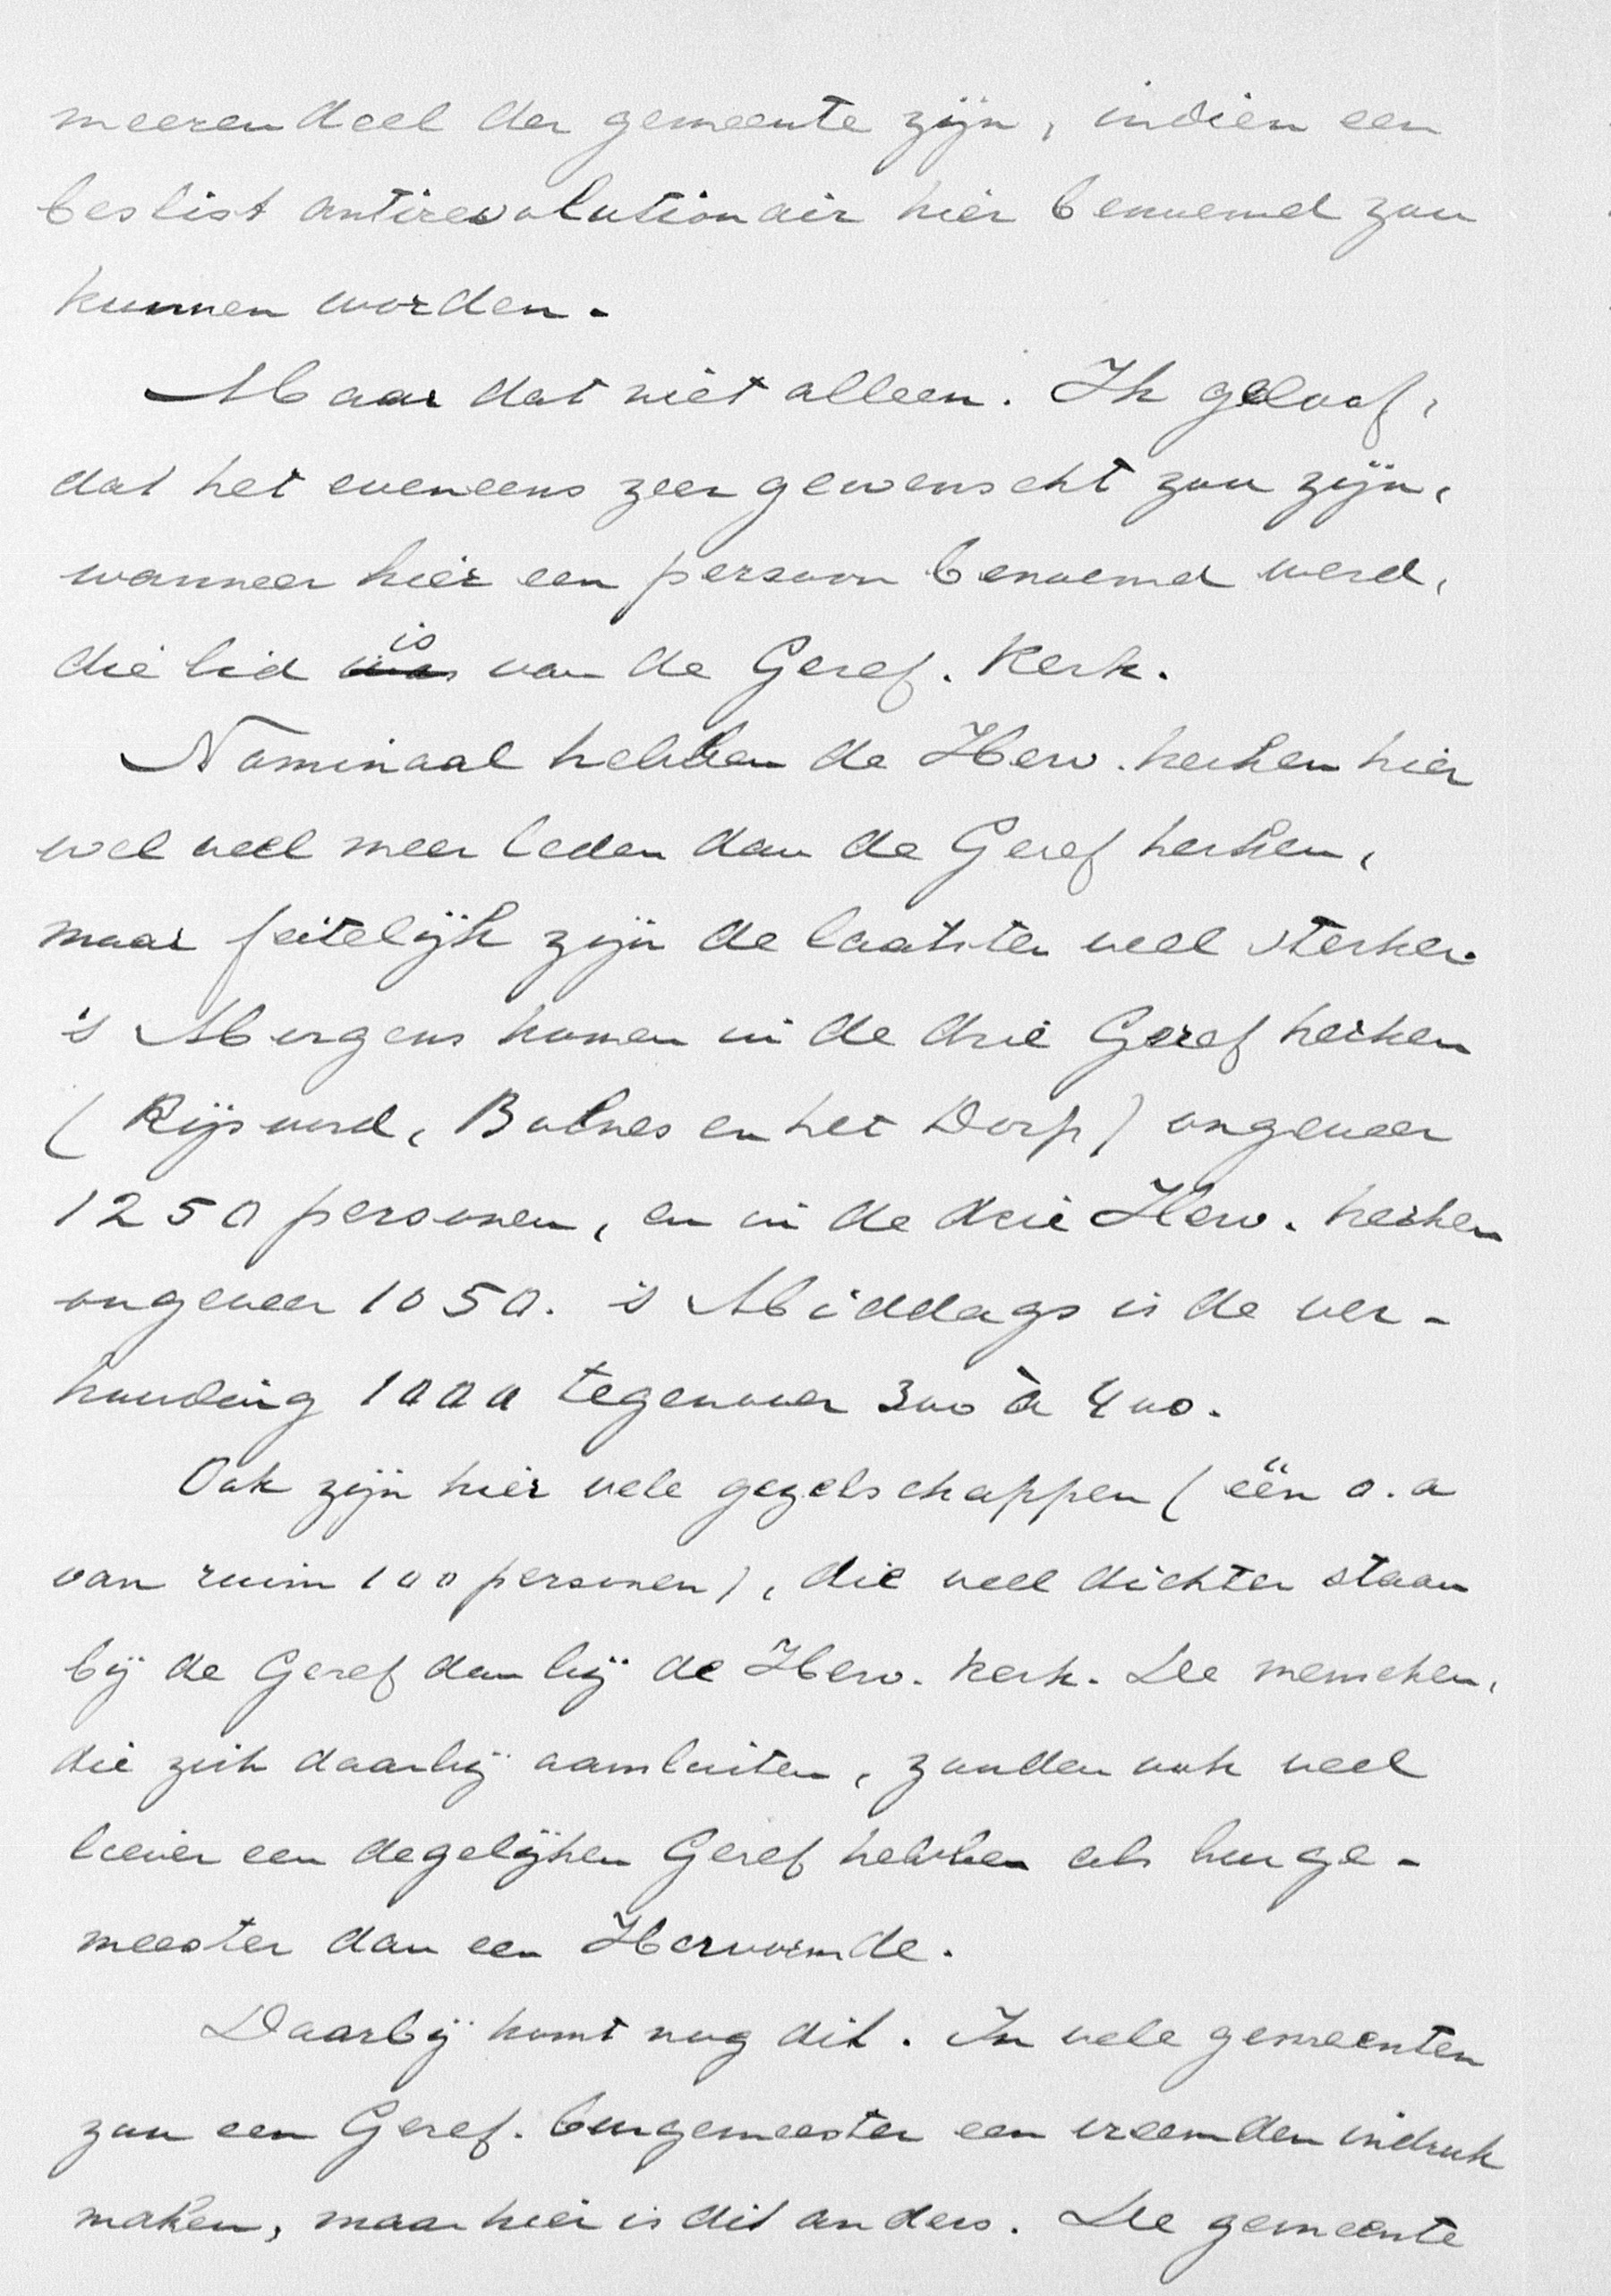 meerendeel der gemeente zijn, indien een
beslist antirevolutionair hier benoemd zou
kunnen worden.
Maar dat niet alleen. Ik geloof,
dat het eveneens zeer gewenscht zou zijn,
wanneer hier een persoon benoemd werd,
die lid was is van de Geref. Kerk.
Nominaal hebben de Herv. kerken hier
wel veel meer leden dan de Geref kerken,
maar feitelijk zijn de laatsten veel sterker.
's Morgens komen in de drie Geref kerken
(Rijsoord, Bolnes en het Dorp) ongeveer
1250 personen, en in de drie Herv. kerken
ongeveer 1050. 's Middags is de ver-
houding 1000 tegenover 300 à 400.
Ook zijn hier vele gezelschappen (één o.a
van ruim 100 personen), die veel dichter staan
bij de Geref dan bij de Herv. Kerk. De menschen,
die zich daarbij aansluiten, zouden ook veel
liever een degelijken Geref hebben als burge-
meester dan een Hervormde.
Daarbij komt nog dit. In vele gemeenten
zou een Geref. burgemeester een vreemden indruk
maken, maar hier is dit anders. De gemeente